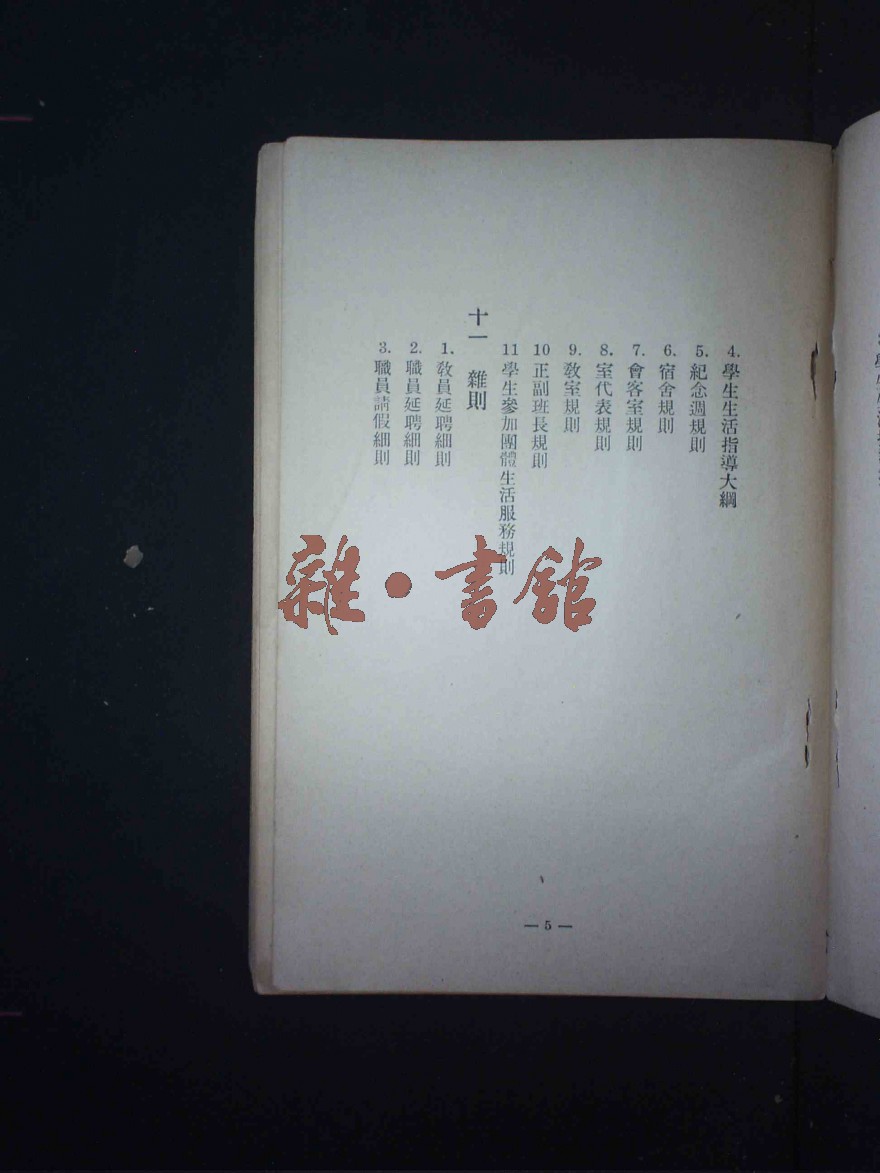 4. 學生生活指導大綱
5. 紀念週規則
6. 宿舍規則
7. 會客室規則
8. 室代表規則
9. 敎室規則
10 正副班長規則
11 學生參加團體生活服務規則
十一 雜則
1. 敎員延聘細則
2. 職員延聘細則
3. 職員請假細則
雜·書館
— 5 —